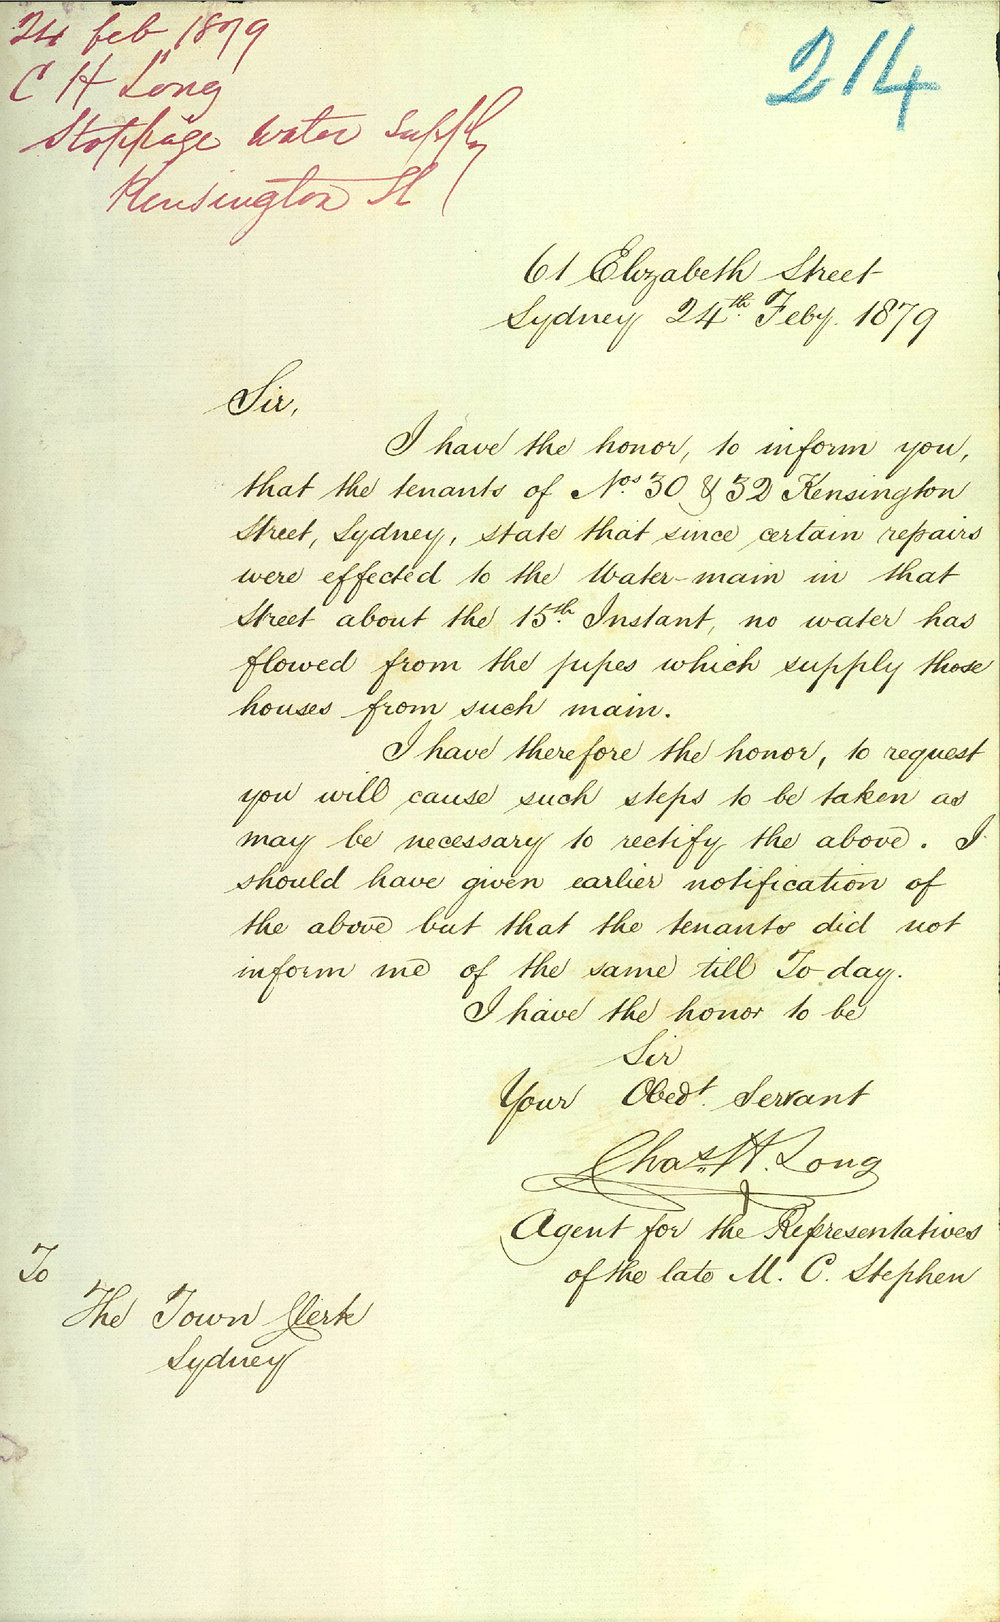 24 feb 1879
C H Long
Stoppage water supply
Kensington St
214
61 Elizabeth Street
Sydney 24th Feby. 1879
Sir,
I have the honor, to inform you,
that the tenants of Nos. 30 & 32 Kensington
Street, Sydney, state that since certain repairs
were effected to the Water-main in that
Street about the 15th Instant, no water has
flowed from the pipes which supply those
houses from such main.
I have therefore the honor, to request
you will cause such steps to be taken as
may be necessary to rectify the above. I
should have given earlier notification of
the above but that the tenants did not
inform me of the same till To day.
I have the honor to be
Sir
Your Obedt. Servant
Chas. H. Long
Agent for the Representatives
of the late M. C. Stephen
To
The Town Clerk
Sydney